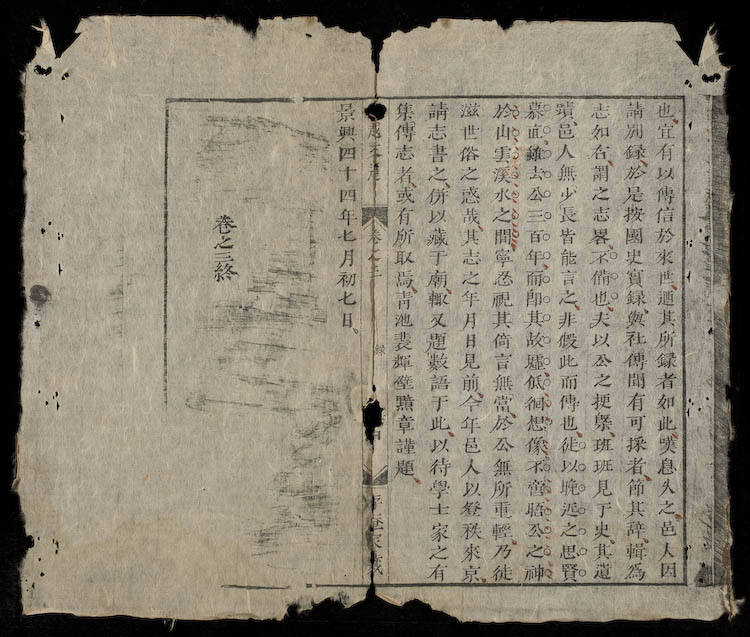 也宜有以傳信於來世迺其所録者如此嘆息久之邑人因
請別録於是按國史實録與社傳聞有可採者節其辭輯爲
志如右謂之志畧不備也夫以公之梗槩班班見于史其遺
蹟邑人無少長皆能言之非假此而傳也徒以晚近之思賢
慕直雖去公三百年而即其故墟低徊想像不啻晤公之神
於山雲溪水之間寧忍視其倚言無當於公無所重輕乃徒
滋世俗之惑哉其志之年月日見前今年邑人以登秩來京
請志書之併以藏于廟輙又題數語于此以待學士家之有
集傳志者或有所取焉青池裴輝璧黯章謹題
景興四十四年七月初七日
卷之三
卷之三終